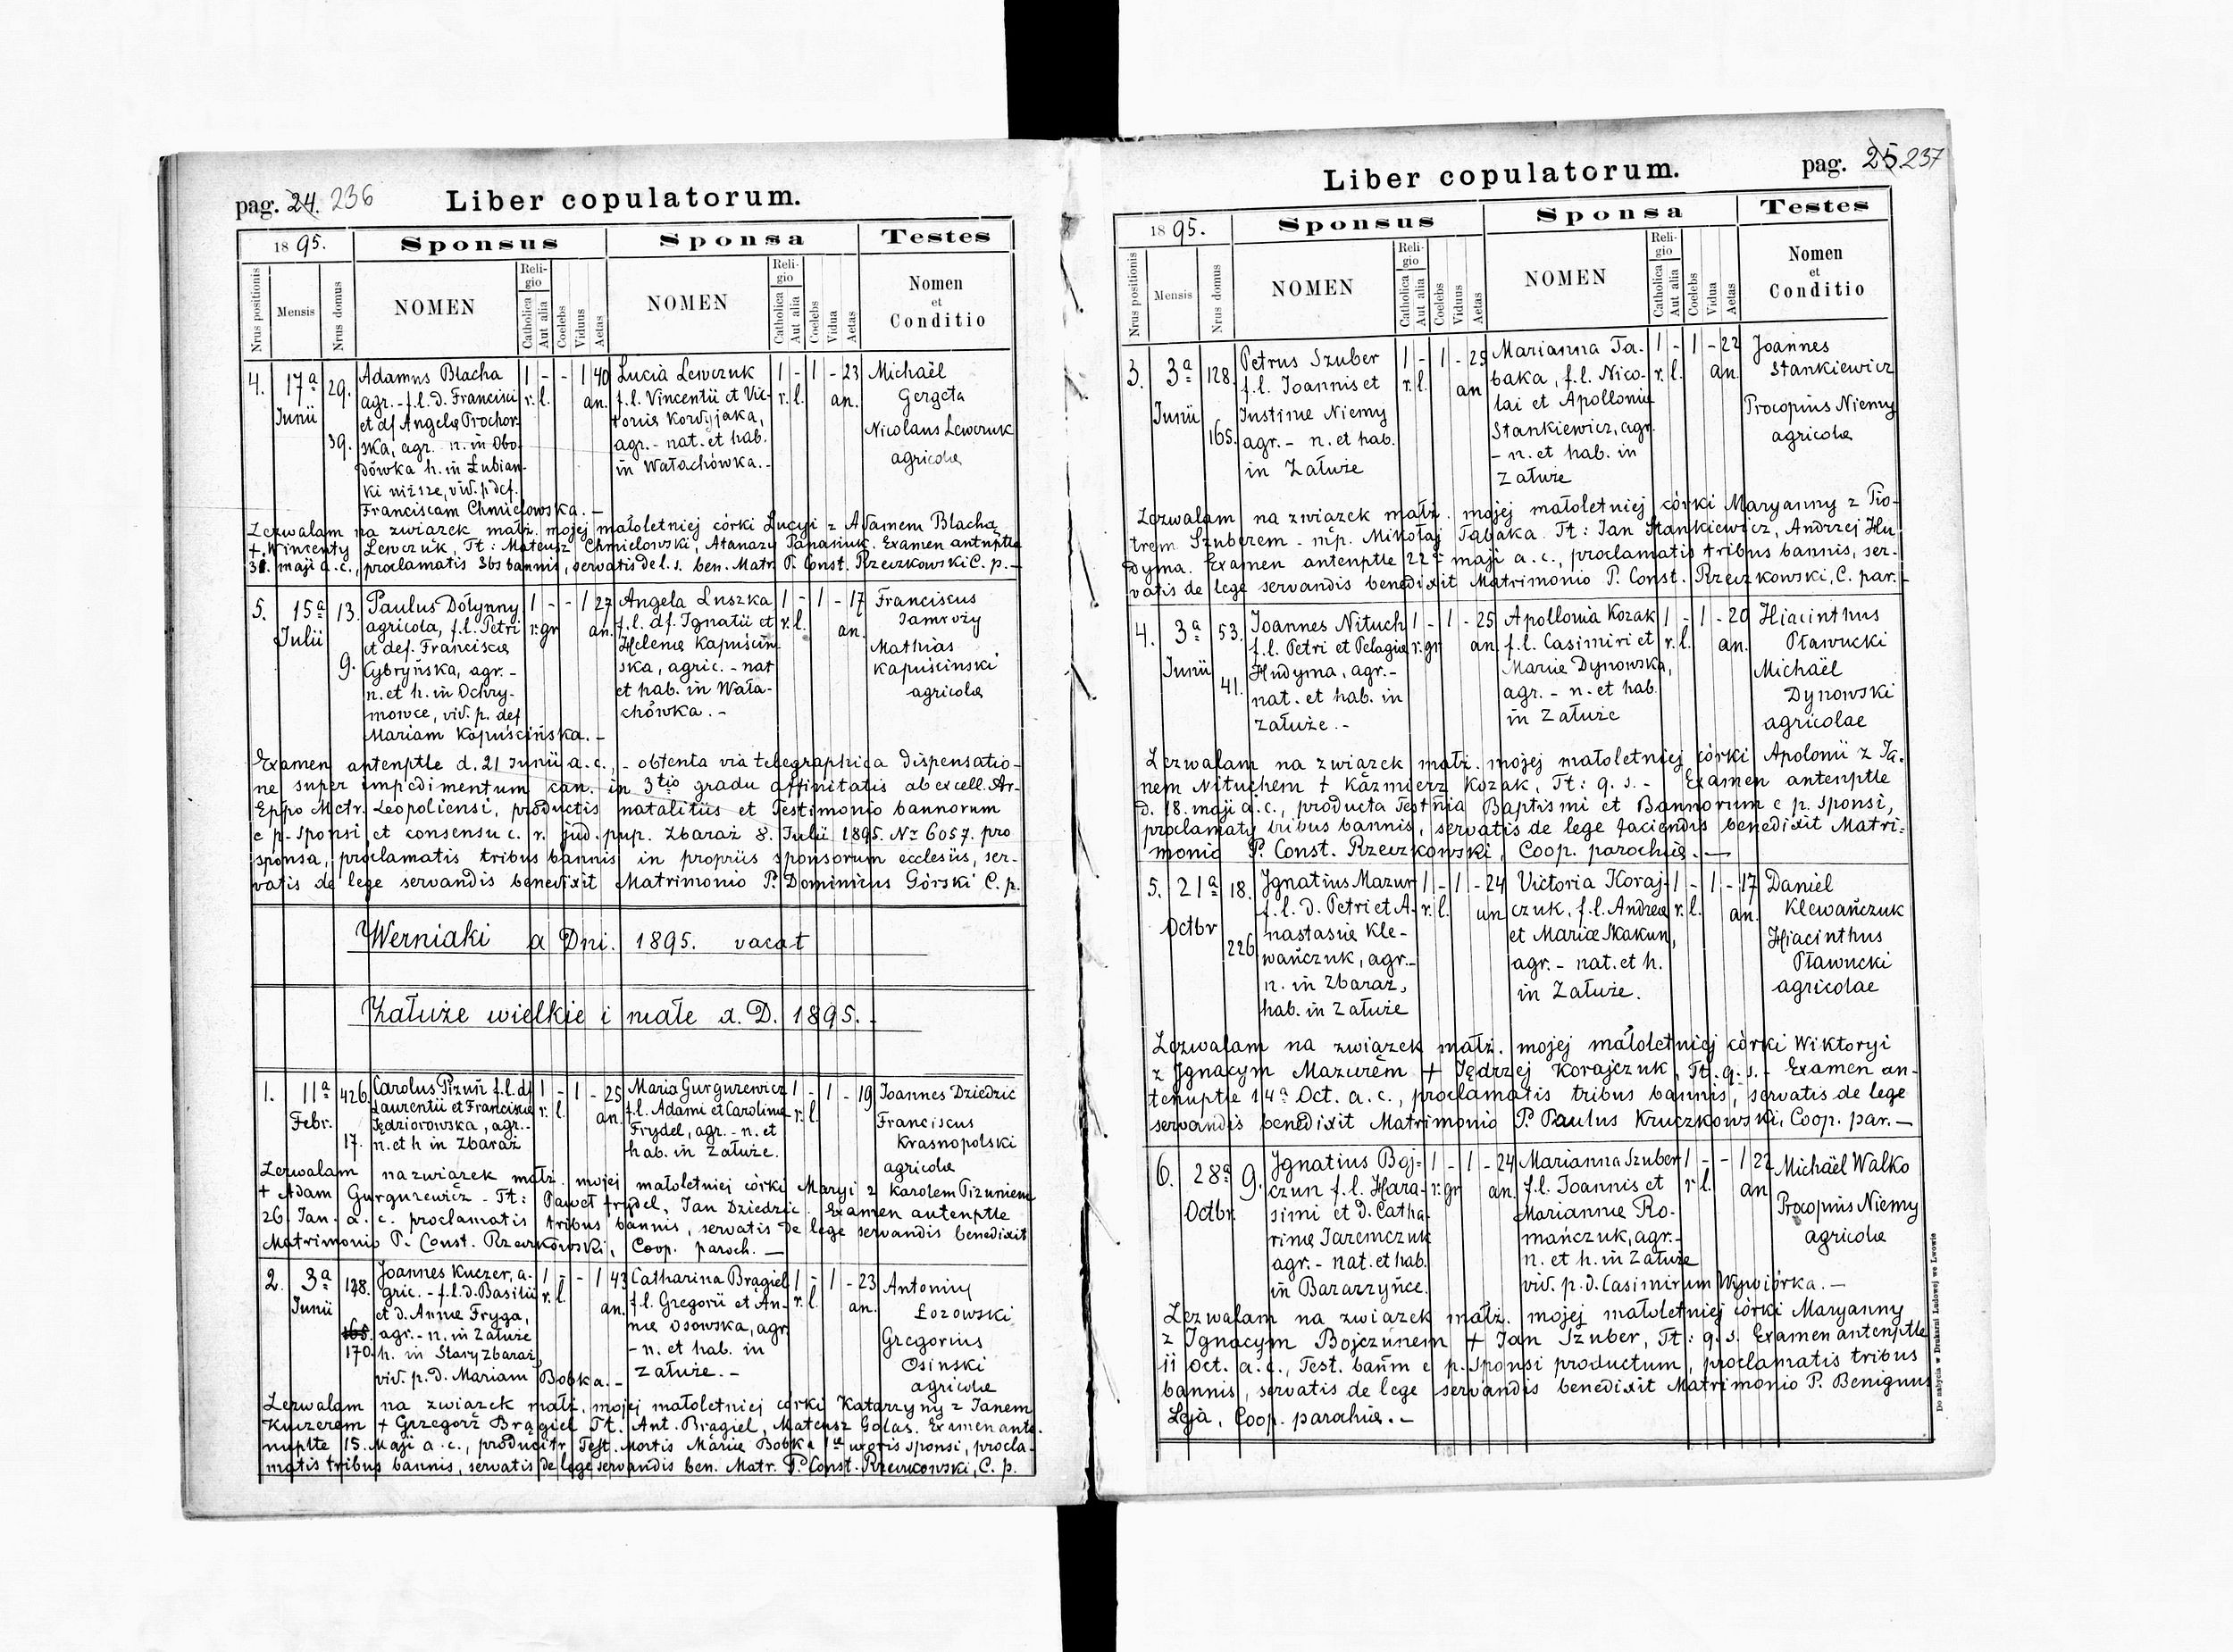 pag. 24. 236
Liber copulatorum.
1895.
Sponsus
Sponsa
Testes
Nrus positionis
Mensis
Nrus domus
NOMEN
Religio
Catholica
Aut alia
Coelebs
Viduus
Aetas
NOMEN
Religio
Catholica
Aut alia
Coelebs
Vidua
Aetas
Nomen
et
Conditio
4.
17ª
Junii
29.
39.
Adamus Blacha
agr. - f.l. D. Francisci
et df Angelæ Prochor
ska, agr. n. in Obo
dówka h. in Łubian
ki niższe, vid. p. def.
Franciscam Chmielowska. -
1 - - 1 40
r. l. an.
Lucia Lewczuk
f.l. Vincentii et Vic-
toriæ Kordyjaka,
agr. - nat. et hab.
in Wałachówka. -
1 - 1 - 23
r. l. an.
Michaël
Gergeta
Nicolaus Lewczuk
agricolæ
Zezwalam na związek małż. mojej małoletniej córki Lucyi z Adamem Blachą
+ Wincenty Lewczuk, Tt: Mateusz Chmielowski, Atanazy Panasiuk. Examen antnptle
31. maji a.c., proclamatis 3bs bannis, servatis de l. s. ben. Matr. P. Const. Rzeczkowski C. p. -
5.
15ª
Julii
13.
9.
Paulus Dołynny
agricola, f.l. Petri
et def. Franciscæ
Cybryńska, agr. -
n. et h. in Ochry-
mowce, vid. p. def
Mariam Kapuścińska. -
1 - - 1 27
r. gr an.
Angela Luszka
f.l. df. Ignatii et
Helenæ Kapuściń
ska, agric. - nat
et hab. in Wała-
chówka. -
1 - 1 - 17
r. l. an.
Franciscus
Jamroży
Mathias
Kapuścinski
agricolæ
Examen antenptle d. 21 Junii a.c., - obtenta via telegraphica dispensatio-
ne super impedimentum can. in 3tio gradu affinitatis ab excell. Ar-
Eppo Mctr. Leopoliensi, productis natalitiis et Testimonio bannorum
e p. sponsi et consensu c. r. jud. pup. Zbaraż 8. Julii 1895. Nr 6057. pro
sponsa, proclamatis tribus bannis in propriis sponsorum ecclesiis, ser-
vatis de lege servandis benedixit Matrimonio P. Dominicus Górski C. p.
Werniaki a Dni. 1895. vacat
Załuże wielkie i małe a. D. 1895. -
1.
11ª
Febr.
426.
17.
Carolus Pizuń f.l. df
Laurentii et Franciscæ
Jędziorowska, agr. -
n. et h in Zbaraż
1 - 1 - 25
r. l. an.
Maria Gurgurewicz
f.l. Adami et Carolinæ
Frydel, agr. - n. et
hab. in Załuże.
1 - 1 - 19
r. l.
Joannes Dziedzic
Franciscus
Krasnopolski
agricolæ
Zezwalam na związek małż. mojej małoletniej córki Maryi z Karolem Pizuniem
+ Adam Gurgurewicz - Tt: Paweł Frydel, Jan Dziedzic. Examen antenptle
26 Jan. a. c. proclamatis tribus bannis, servatis de lege servandis benedixit
Matrimonio P. Const. Rzeczkowski, Coop. paroch. -
2.
3ª
Junii
128.
165.
170.
Joannes Kuczer, a-
gric. - f.l. D. Basilii
et d. Annæ Fryga,
agr. - n. in Załuże
h. in Stary Zbaraż
vid. p. D. Mariam Bobka. -
1 - - 1 43
r. l. an.
Catharina Brągiel
f.l. Gregorii et An-
næ Osowska, agr
- n. et hab. in
Załuże. -
1 - 1 - 23
r. l. an.
Antonius
Łozowski
Gregorius
Osinski
agricolæ
Zezwalam na związek małż. mojej małoletniej córki Katarzyny z Janem
Kuczerem + Grzegorż Brągiel Tt. Ant. Brągiel, Mateusz Golas. Exmen ante
nuptle 15. Maji a.c., producitr Test. Mortis Mariæ Bobka 1æ uxoris sponsi, procla-
matis tribus bannis, servatis de lege servandis ben. Matr. P. Const. Rzeczkowski, C. p.
Liber copulatorum.
pag. 25. 237
1895.
Sponsus
Sponsa
Testes
Nrus positionis
Mensis
Nrus domus
NOMEN
Religio
Catholica
Aut alia
Coelebs
Viduus
Aetas
NOMEN
Religio
Catholica
Aut alia
Coelebs
Vidua
Aetas
Nomen
et
Conditio
3.
3ª
Junii
128.
165.
Petrus Szuber
f.l. Joannis et
Justinæ Niemy
agr. - n. et hab.
in Załuże
1 - 1 - 25
r. l. an
Marianna Ta-
baka, f.l. Nico-
lai et Apolloniæ
Stankiewicz, agr.
- n. et hab. in
Załuże
1 - 1 - 22
r. l. an.
Joannes
Stankiewicz
Procopius Niemy
agricolæ
Zezwalam na związek małż. mojej małoletniej córki Maryanny z Pio-
trem Szuberem - nip. Mikołaj Tabaka. Tt: Jan Stankiewicz, Andrzej Hu
dyma. Examen antenptle 22ª maji a.c., proclamatis tribus bannis, ser-
vatis de lege servandis benedixit Matrimonio P. Const. Rzeczkowski, C. par. -
4.
3ª
Junii
53.
41.
Joannes Nituch
f.l. Petri et Pelagiæ
Hudyma, agr. -
nat. et hab. in
Załuże. -
1 - 1 - 25
r. gr an
Apollonia Kozak
f.l. Casimiri et
Mariæ Dynowska,
agr. - n. et hab.
in Załuże
1 - 1 - 20
r. l. an.
Hiacinthus
Pławucki
Michaël
Dynowski
agricolae
Zezwalam na związek małż. mojej małoletniej córki Apolonii z Ja-
nem Nituchem + Kaźmierz Kozak, Tt: q. s. - Examen antenptle
D. 18. maji a.c., producta Testñia Baptismi et Bannorum e p. sponsi,
proclamatis tribus bannis, servatis de lege faciendis benedixit Matri-
monio P. Const. Rzeczkowski, Coop. parochiæ. -
5.
21ª
Octbr
18.
226
Ignatius Mazur
f.l. D. Petri et A-
nastasiæ Kle-
wańczuk, agr. -
n. in Zbaraż,
hab. in Załuże
1 - 1 - 24
r. l. an
Victoria Koraj-
czuk, f.l. Andreæ
et Mariæ Skakun,
agr. - nat. et h.
in Załuże.
1 - 1 - 17
r. l. an.
Daniel
Klewańczuk
Hiacinthus
Pławucki
agricolae
Zezwalam na związek małż. mojej małoletniej córki Wiktoryi
z Ignacym Mazurem + Jędrzej Korajczuk, Tt. q. s. - Examen an-
tenuptle 14ª Oct. a. c., proclamatis tribus bannis, servatis de lege
servandis benedixit Matrimonio P. Paulus Kruczkowski, Coop. par. -
6.
28ª
Octbr.
9.
Ignatius Boj-
czun f.l. Hara-
simi et D. Catha
rinæ Jaremczuk
agr. - nat. et hab.
in Bazarzyńce.
1 - 1 - 24
r. gr an.
Marianna Szuber
f.l. Joannis et
Mariannæ Ro-
mańczuk, agr. -
n. et h. in Załuże
vid. p. d. Casimirum Wywiórka. -
1 - - 1 22
r l. an
Michäel Walko
Procopius Niemy
agricolæ
Zezwalam na związek małż. mojej małoletniej córki Maryanny
z Ignacym Bojczunem + Jan Szuber, Tt: q. s. Examen antenptle
11 Oct. a. c., Test. bañm e p. sponsi productum, proclamatis tribus
bannis, servatis de lege servandis benedixit Matrimonio P. Benignus
Leja, Coop. parochiæ. -
Do nabycia w Drukarni Ludowej we Lwowie